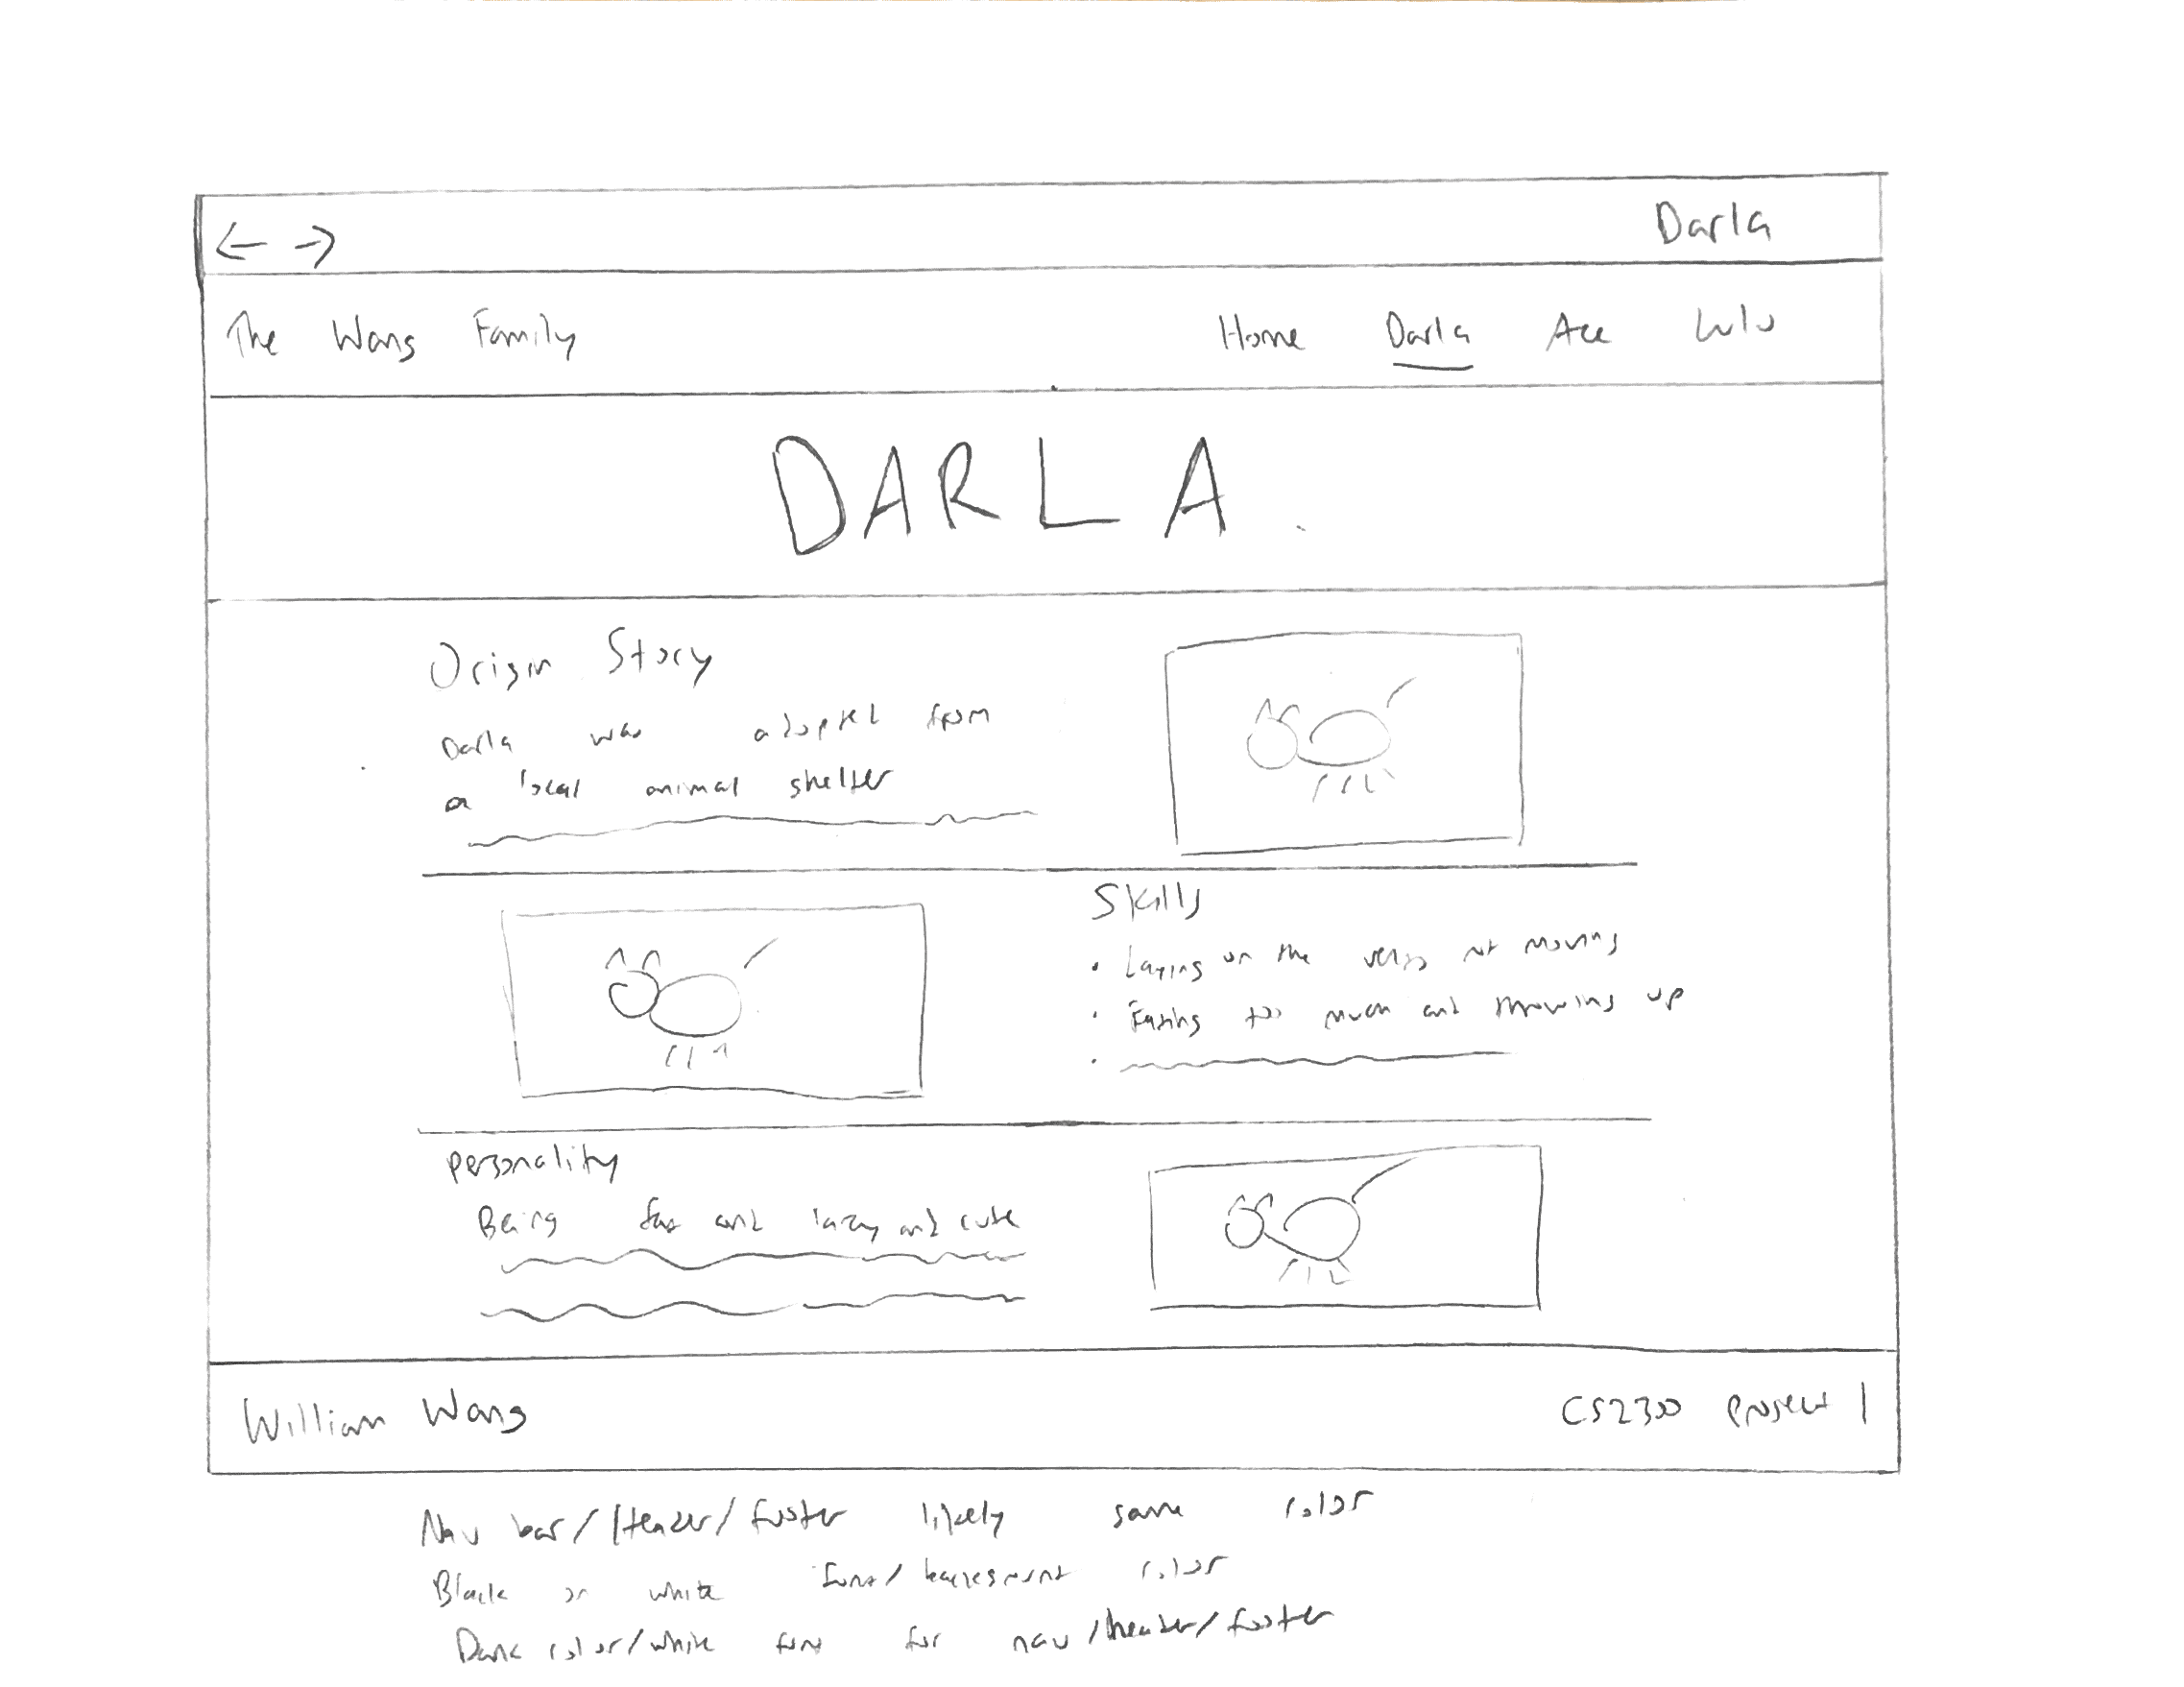 ← → Darla
The Wang Family Home Darla Ace Lulu
DARLA
Origin Story
Darla was adopted from
a local animal shelter
Skills
• Laying on the not moving
• Eating too much and throwing up
•
Personality
Being fat and lazy and cute
William Wang CS2300 Project 1
Nav bar/Header/footer likely same color
Black on white font/background color
Dark color/white font for nav/header/footer